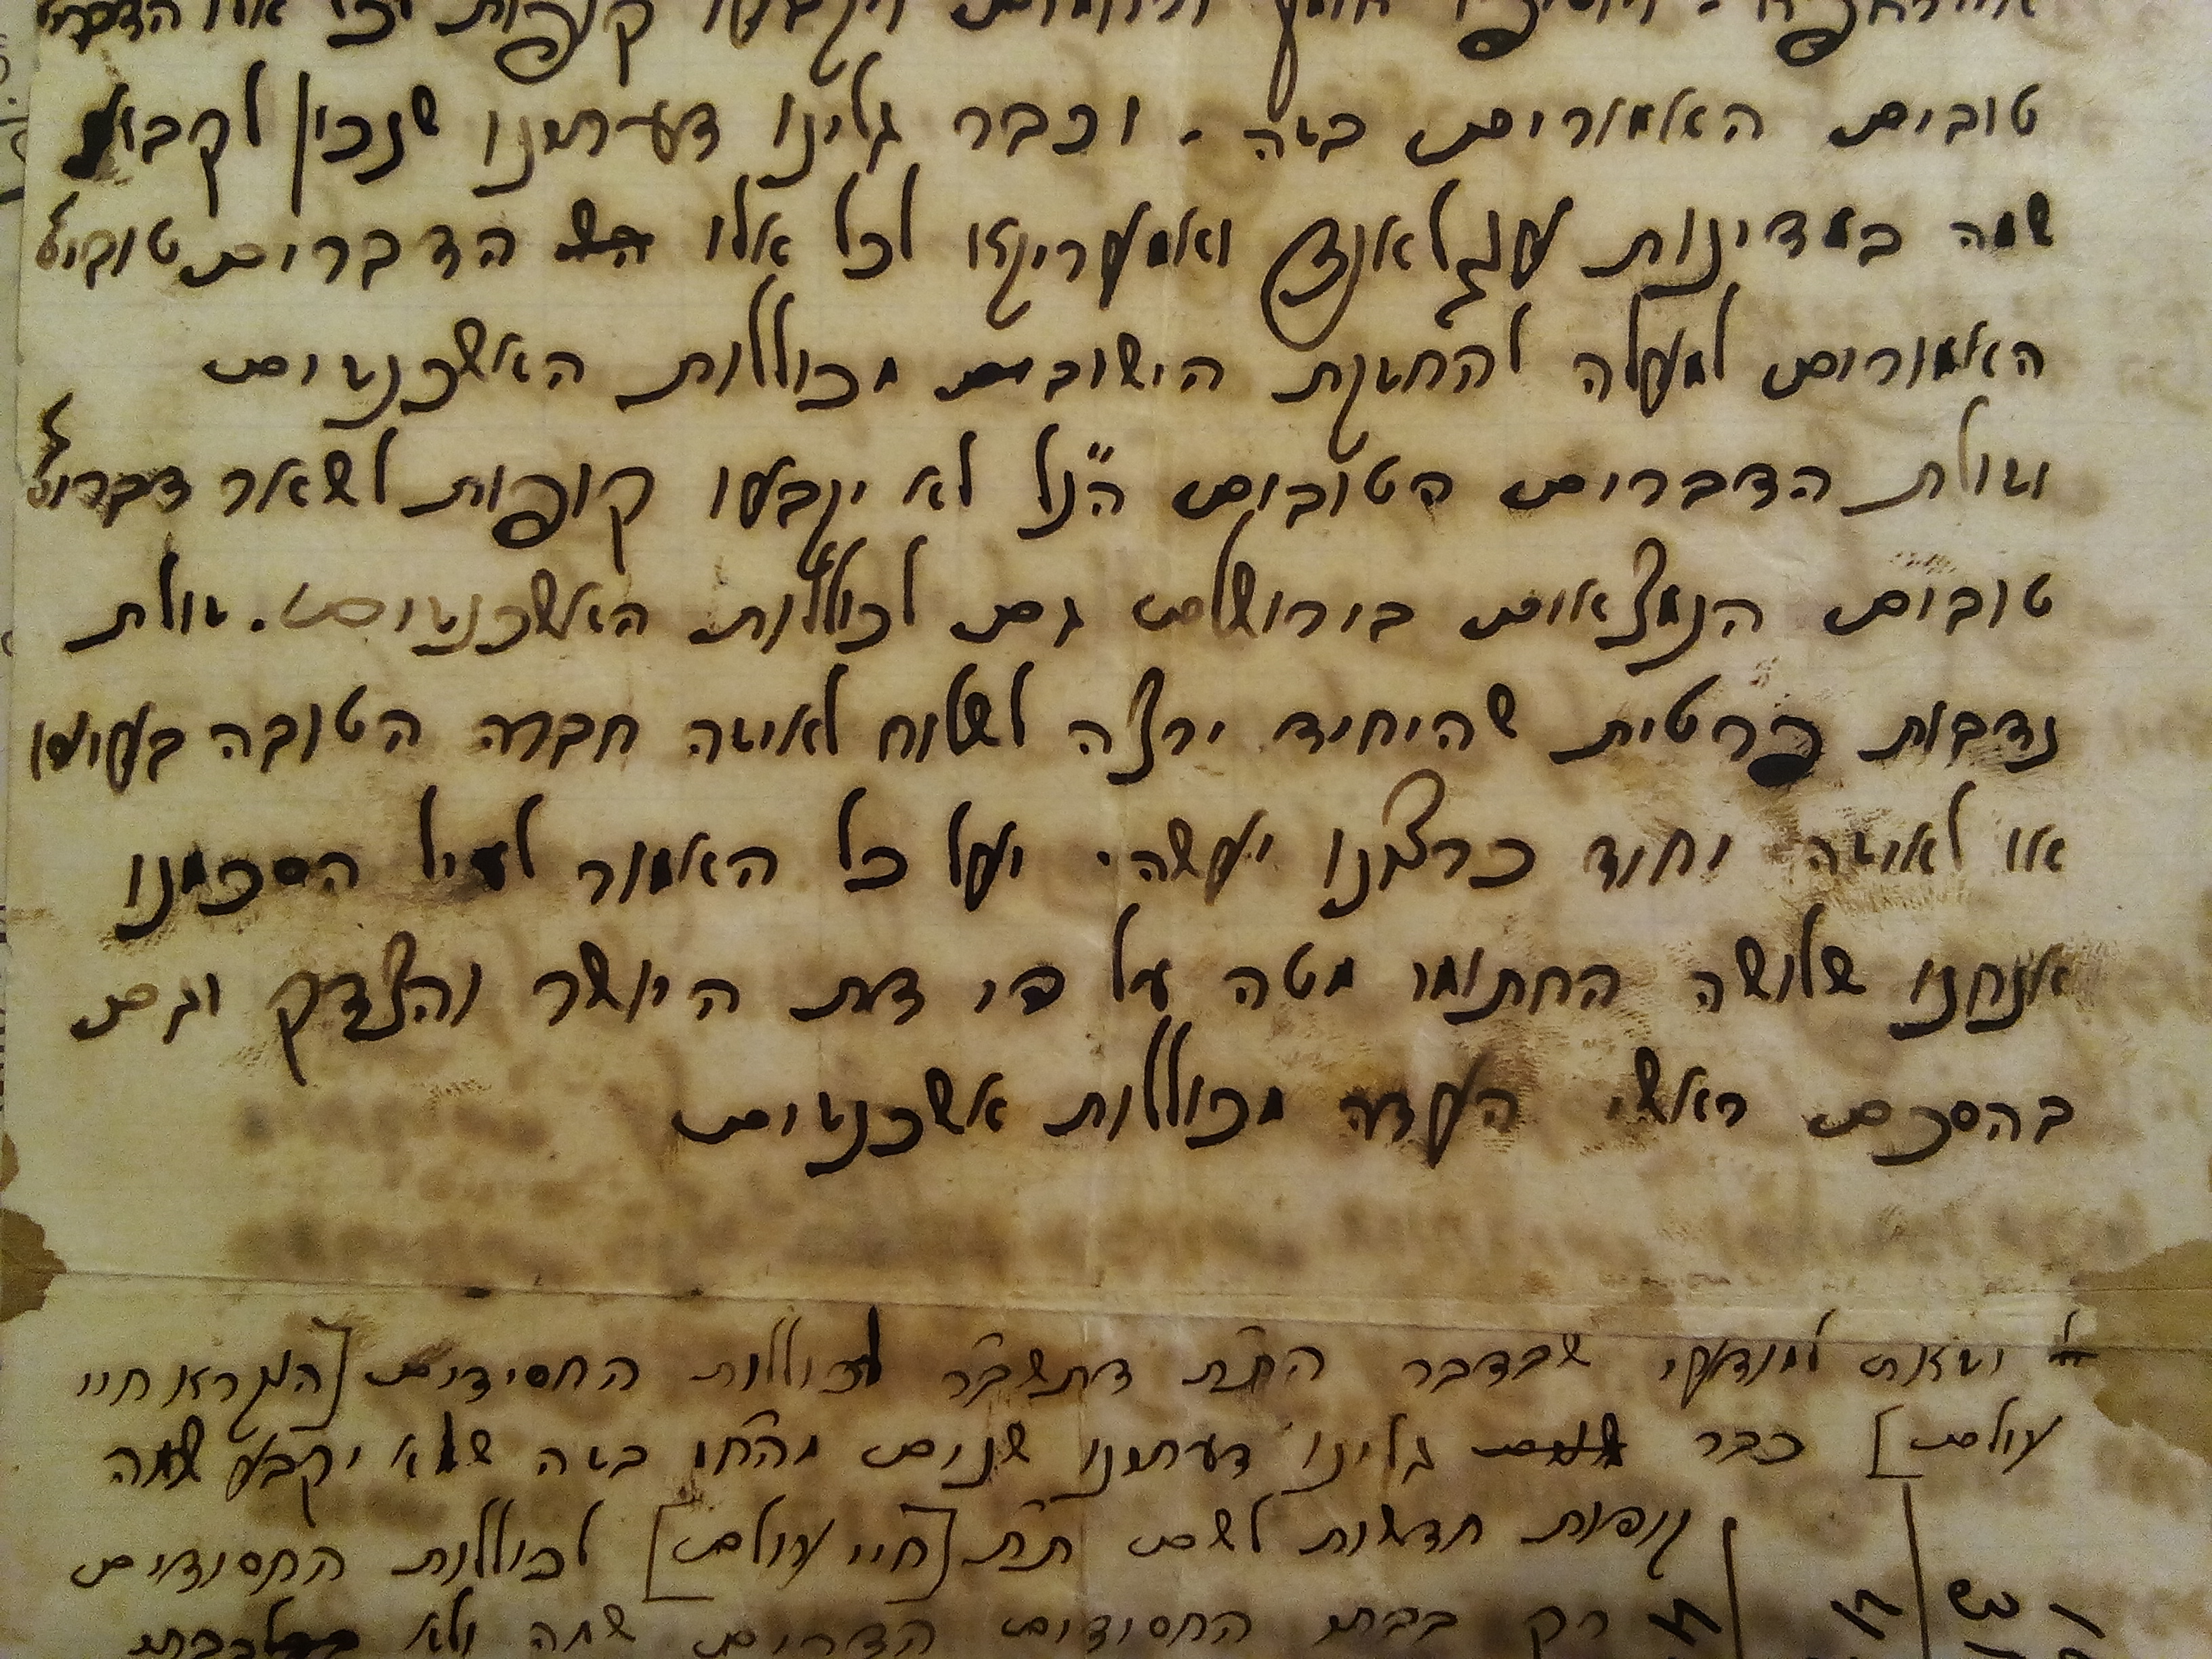 קופות אלו הדברים
טובים האמורים בזה - וכבר גלינו דעתנו שנכון לקבוע
שמה במדינות ענגלאנד ואמעריקא לכל אלו הדברים טובים
האמורים למעלה להחזקת הישוב מכוללות האשכנזים
וזולת הדברים הטובים הנ״ל לא יקבעו קופות לשאר דברים
טובים הנמצאים בירושלם גם לכוללות האשכנזים. זולת
נדבות פרטית שהיחיד ירצה לשלוח לאיזה חברה הטובה בעיניו
או לאיזה יחיד כרצונו יעשה. יעל כל האמור לעיל הסכמנו
אנחנו שלושה החתומי מטה על פי דת היושר והצדק וגם
בהסכם ראשי העדה מכוללות אשכנזים
שבדבר הת״ת דתשב״ר לכוללות החסידים [הנקרא חיי
עולם] כבר גלינו דעתנו שנים מהח״מ בזה שלא יקבע שמה
קופות חדשות לשם ת״ת [חיי עולם] לכוללות החסידים
רק בבתי החסידים הדרים שמה ולא